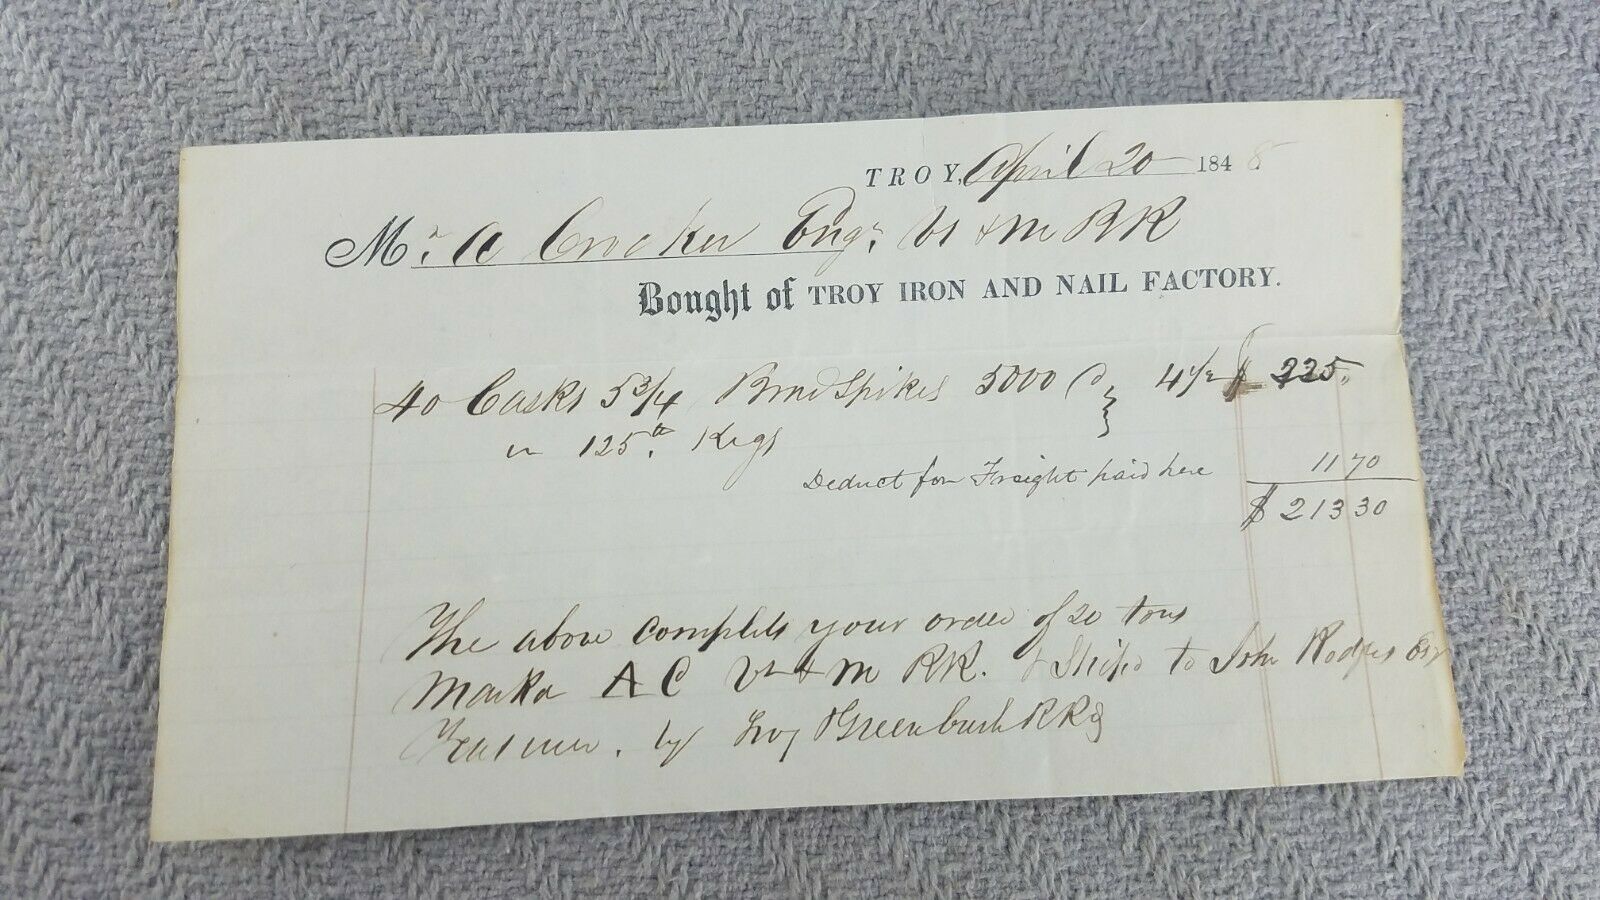 TROY, April 20 1848.
Mr. A Crocker Engr. Vt & M RR
Bought of TROY IRON AND NAIL FACTORY.
40 Casks 5 3/4 Brad Spikes 5000 4 1/2 $ 225.
in 125 Kegs
Deduct for Freight paid here 11 70
$ 213 30
The above complets your order of 20 tons
Marka A C Vt & M RR. & Ship'd to John Rodgers Esq
Treasurer. by Troy & Greenbush RRd